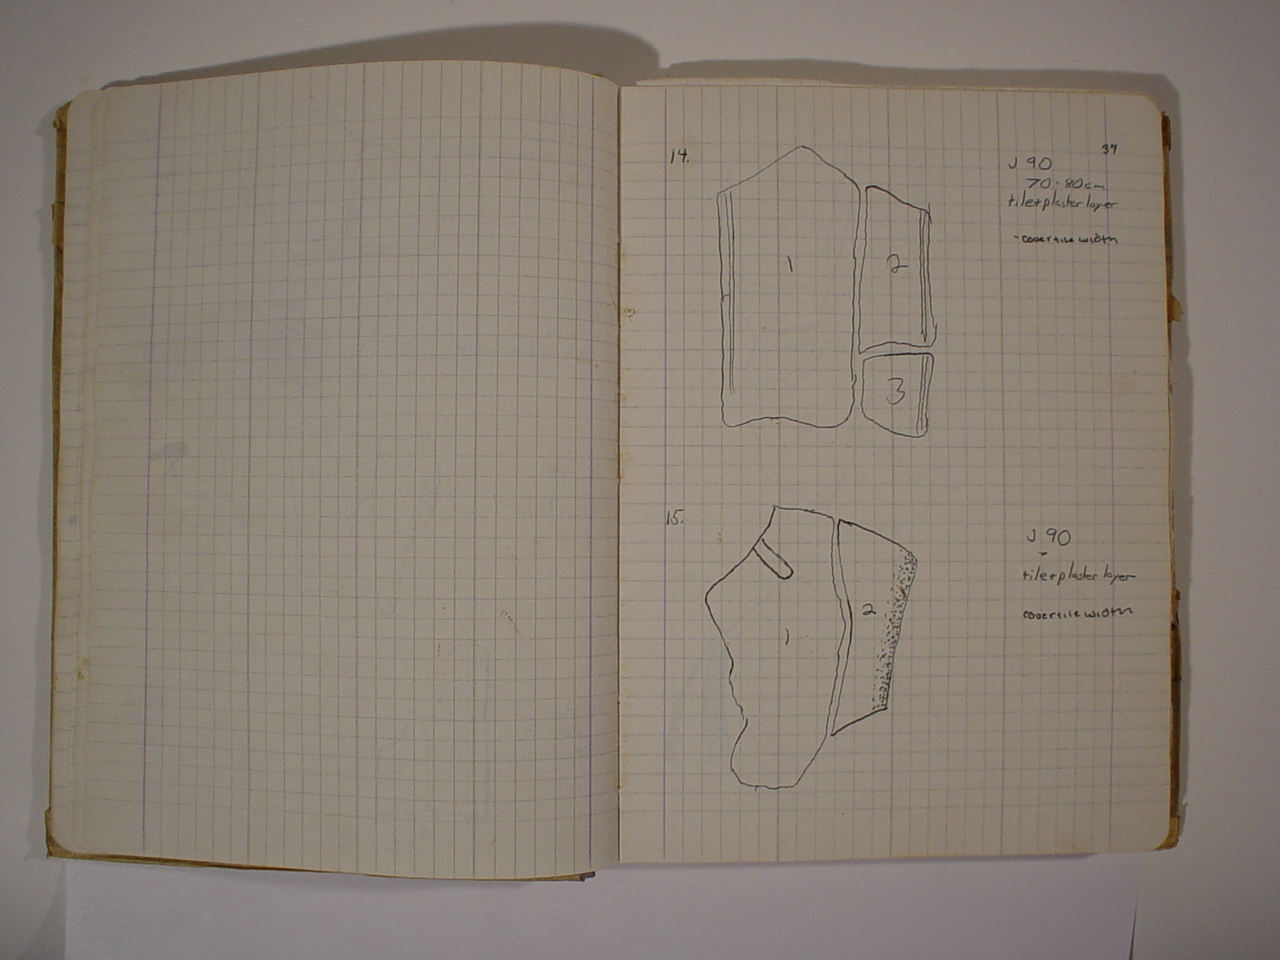 37
14.
J 90
70-80cm
tile+plaster layer
-cover tile width
1
2
3
15.
J 90
tile+plaster layer
cover tile width
1
2